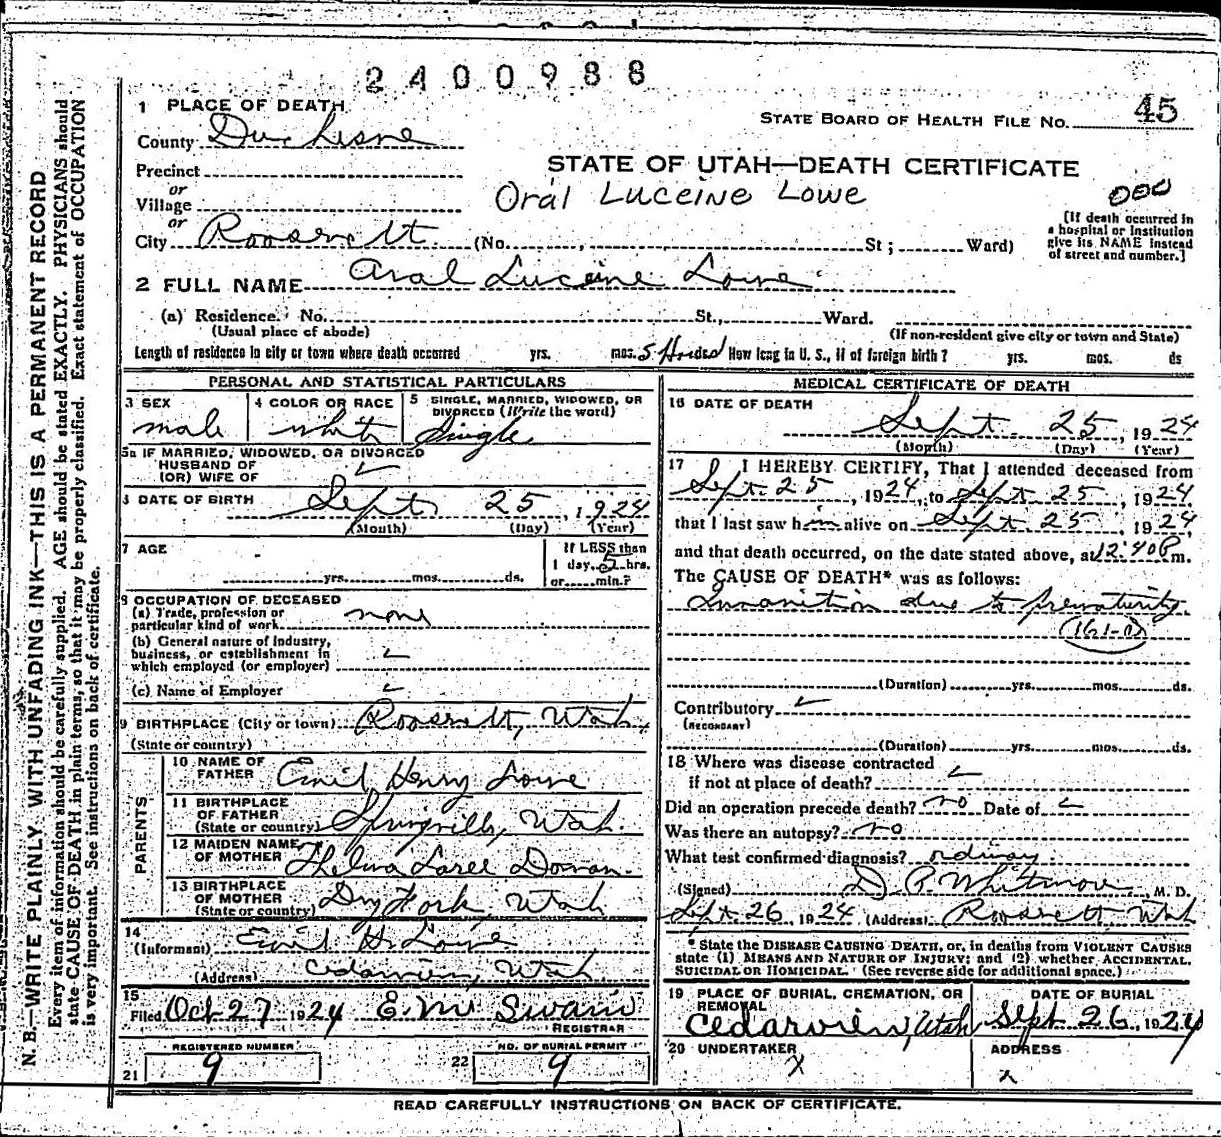 2400988
1 PLACE OF DEATH
STATE BOARD OF HEALTH FILE NO. 45
County Duchesne
STATE OF UTAH—DEATH CERTIFICATE
Precinct
or
Village
Oral Luceine Lowe
000
or
City Roosevelt (No. , St; Ward)
[If death occurred in
a hospital or institution
give its NAME instead
of street and number.]
2 FULL NAME Oral Luceine Lowe
(a) Residence. No. St., Ward.
(Usual place of abode) (If non-resident give city or town and State)
Length of residence in city or town where death occurred yrs. mos. 5 ds How long in U. S., if of foreign birth? yrs. mos. ds
PERSONAL AND STATISTICAL PARTICULARS
3 SEX male
4 COLOR OR RACE white
5 SINGLE, MARRIED, WIDOWED, OR
DIVORCED (Write the word)
Single
5a IF MARRIED, WIDOWED, OR DIVORCED
HUSBAND OF
(OR) WIFE OF
6 DATE OF BIRTH
Sept 25, 1924
(Month) (Day) (Year)
7 AGE
yrs. mos. ds.
If LESS than
1 day, 5 hrs.
or min.?
8 OCCUPATION OF DECEASED
(a) Trade, profession or
particular kind of work none
(b) General nature of industry,
business, or establishment in
which employed (or employer)
(c) Name of Employer
9 BIRTHPLACE (City or town) Roosevelt, Utah,
(State or country)
PARENTS
10 NAME OF
FATHER Emil Henry Lowe
11 BIRTHPLACE
OF FATHER
(State or country) Springville, Utah.
12 MAIDEN NAME
OF MOTHER Thelma Laree
13 BIRTHPLACE
OF MOTHER
(State or country) Dry Fork, Utah
14
(Informant) Emil H. Lowe
(Address) Cedarview, Utah
15
Filed Oct 27 1924 E. M. Swain
REGISTRAR
REGISTERED NUMBER
21 9
NO. OF BURIAL PERMIT
22 9
MEDICAL CERTIFICATE OF DEATH
16 DATE OF DEATH
Sept 25, 1924
(Month) (Day) (Year)
17 I HEREBY CERTIFY, That I attended deceased from
Sept. 25, 1924, to Sept 25, 1924
that I last saw him alive on Sept 25, 1924,
and that death occurred, on the date stated above, at 12:40 P m.
The CAUSE OF DEATH* was as follows:
Inanition due to prematurity
(Duration) yrs. mos. ds.
Contributory
(SECONDARY)
(Duration) yrs. mos. ds.
18 Where was disease contracted
if not at place of death?
Did an operation precede death? no Date of
Was there an autopsy? no
What test confirmed diagnosis? ordinary
(Signed) D. P. Whitmore, M. D.
Sept. 26, 1924 (Address) Roosevelt, Utah
* State the DISEASE CAUSING DEATH, or, in deaths from VIOLENT CAUSES
state (1) MEANS AND NATURE OF INJURY; and (2) whether ACCIDENTAL,
SUICIDAL OR HOMICIDAL. (See reverse side for additional space.)
19 PLACE OF BURIAL, CREMATION, OR
REMOVAL
Cedarview, Utah
DATE OF BURIAL
Sept 26, 1924
20 UNDERTAKER
x
ADDRESS
x
READ CAREFULLY INSTRUCTIONS ON BACK OF CERTIFICATE.
N. B.—WRITE PLAINLY, WITH UNFADING INK—THIS IS A PERMANENT RECORD
Every item of information should be carefully supplied. AGE should be stated EXACTLY. PHYSICIANS should
state CAUSE OF DEATH in plain terms, so that it may be properly classified. Exact statement of OCCUPATION
is very important. See instructions on back of certificate.